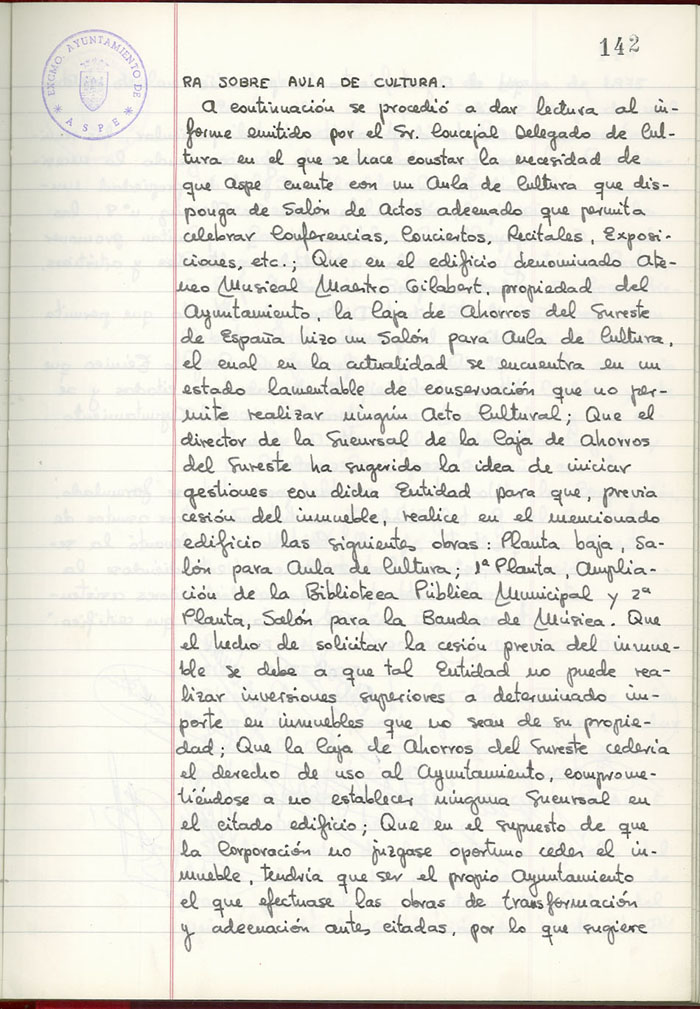 142
EXCMO. AYUNTAMIENTO DE
* ASPE *
RA SOBRE AULA DE CULTURA.
A continuación se procedió a dar lectura al in-
forme emitido por el Sr. Concejal Delegado de Cul-
tura en el que se hace constar la necesidad de
que Aspe cuente con un Aula de Cultura que dis-
ponga de Salón de Actos adecuado que permita
celebrar Conferencias, Conciertos, Recitales, Exposi-
ciones, etc.; Que en el edificio denominado Ate-
neo Musical Maestro Gilabert, propiedad del
Ayuntamiento, la Caja de Ahorros del Sureste
de España hizo un Salón para Aula de Cultura,
el cual en la actualidad se encuentra en un
estado lamentable de conservación que no per-
mite realizar ningún Acto Cultural; Que el
director de la Sucursal de la Caja de Ahorros
del Sureste ha sugerido la idea de iniciar
gestiones con dicha Entidad para que, previa
cesión del inmueble, realice en el mencionado
edificio las siguientes obras: Planta baja, Sa-
lón para Aula de Cultura; 1ª Planta, Amplia-
ción de la Biblioteca Pública Municipal y 2ª
Planta, Salón para la Banda de Música. Que
el hecho de solicitar la cesión previa del inmue-
ble se debe a que tal Entidad no puede rea-
lizar inversiones superiores a determinado im-
porte en inmuebles que no sean de su propie-
dad; Que la Caja de Ahorros del Sureste cedería
el derecho de uso al Ayuntamiento, comprome-
tiéndose a no establecer ninguna Sucursal en
el citado edificio; Que en el supuesto de que
la Corporación no juzgase oportuno ceder el in-
mueble, tendría que ser el propio Ayuntamiento
el que efectuase las obras de transformación
y adecuación antes citadas, por lo que sugiere